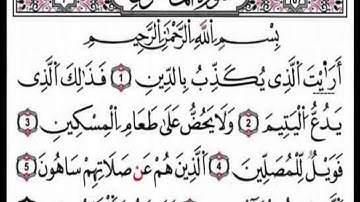 بِسْمِ اللَّهِ الرَّحْمَٰنِ الرَّحِيمِ
أَرَأَيْتَ الَّذِي يُكَذِّبُ بِالدِّينِ ١ فَذَٰلِكَ الَّذِي
يَدُعُّ الْيَتِيمَ ٢ وَلَا يَحُضُّ عَلَىٰ طَعَامِ الْمِسْكِينِ ٣
فَوَيْلٌ لِلْمُصَلِّينَ ٤ الَّذِينَ هُمْ عَنْ صَلَاتِهِمْ سَاهُونَ ٥